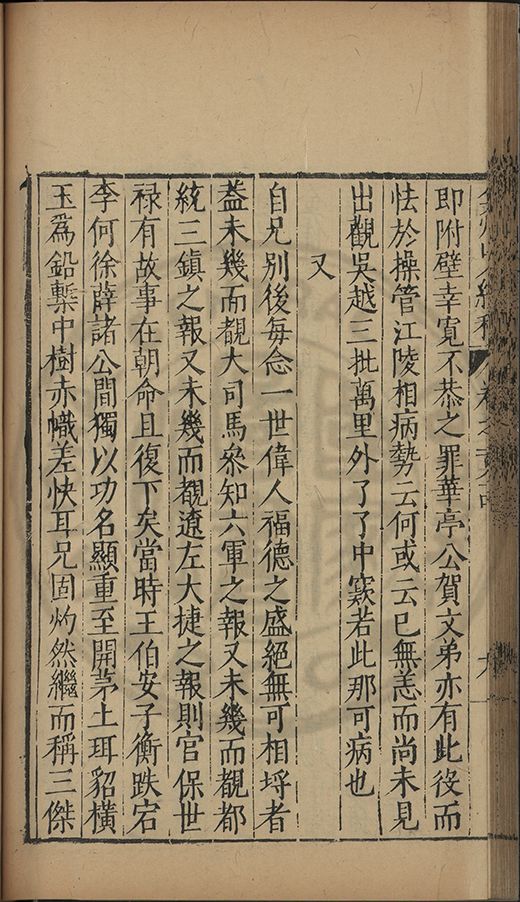 即附壁幸寛不恭之罪華亭公賀文弟亦有此役而
怯於操管江陵相病勢云何或云已無恙而尚未見
出觀吳越三批萬里外了了中窾若此那可病也
又
自兄別後每念一世偉人福德之盛絕無可相埒者
葢未幾而覩大司馬叅知六軍之報又未幾而覩都
統三鎮之報又未幾而覩遼左大捷之報則官保世
祿有故事在朝命且復下矣當時王伯安子衡跌宕
李何徐薛諸公間獨以功名顯重至開茅土珥貂橫
玉為鉛槧中樹赤幟差快耳兄固灼然繼而稱三傑